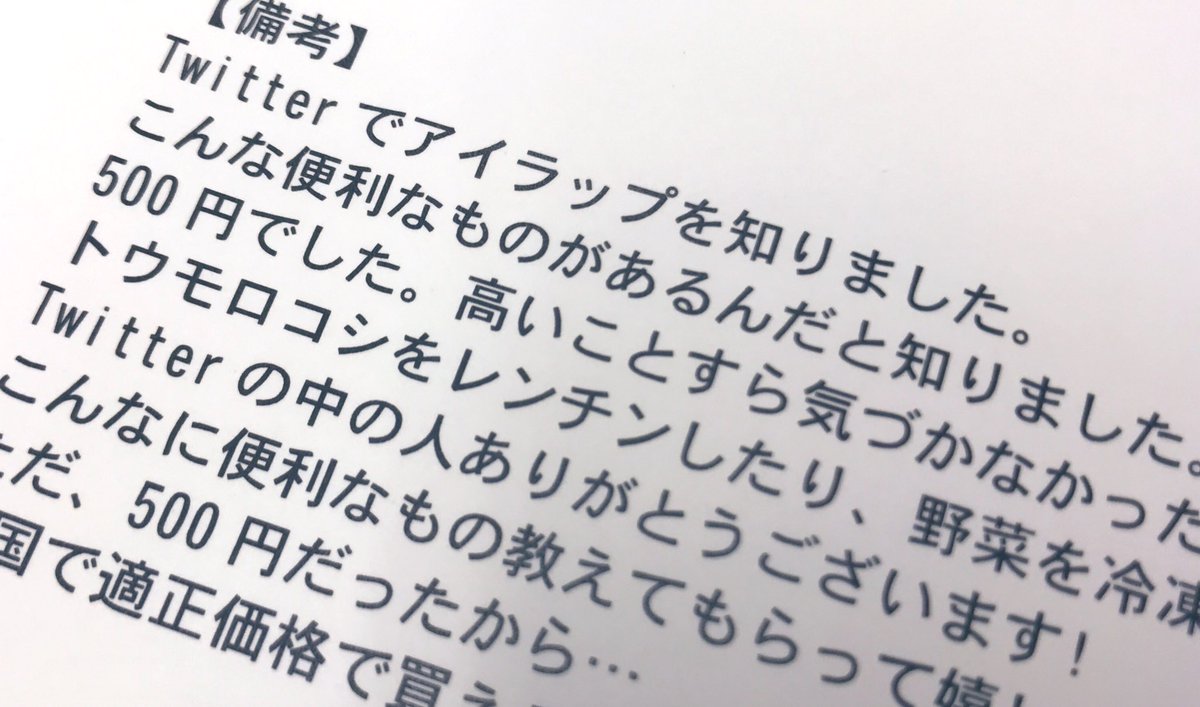 【備考】
Twitterでアイラップを知りました。
こんな便利なものがあるんだと知りました。
500円でした。高いことすら気づかなかった
トウモロコシをレンチンしたり、野菜を冷凍
Twitterの中の人ありがとうございます!
こんなに便利なもの教えてもらって嬉し
ただ、500円だったから…
国で適正価格で買え